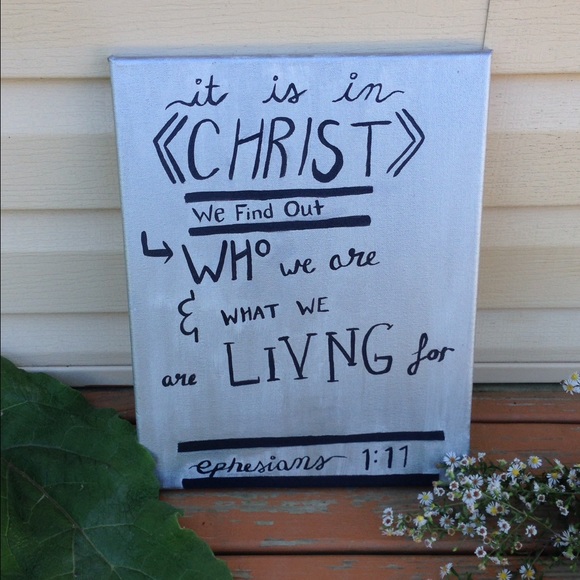 it is in
《CHRIST》
We Find Out
↳ WHO we are
& WHAT WE
are LIVNG for
ephesians 1:11